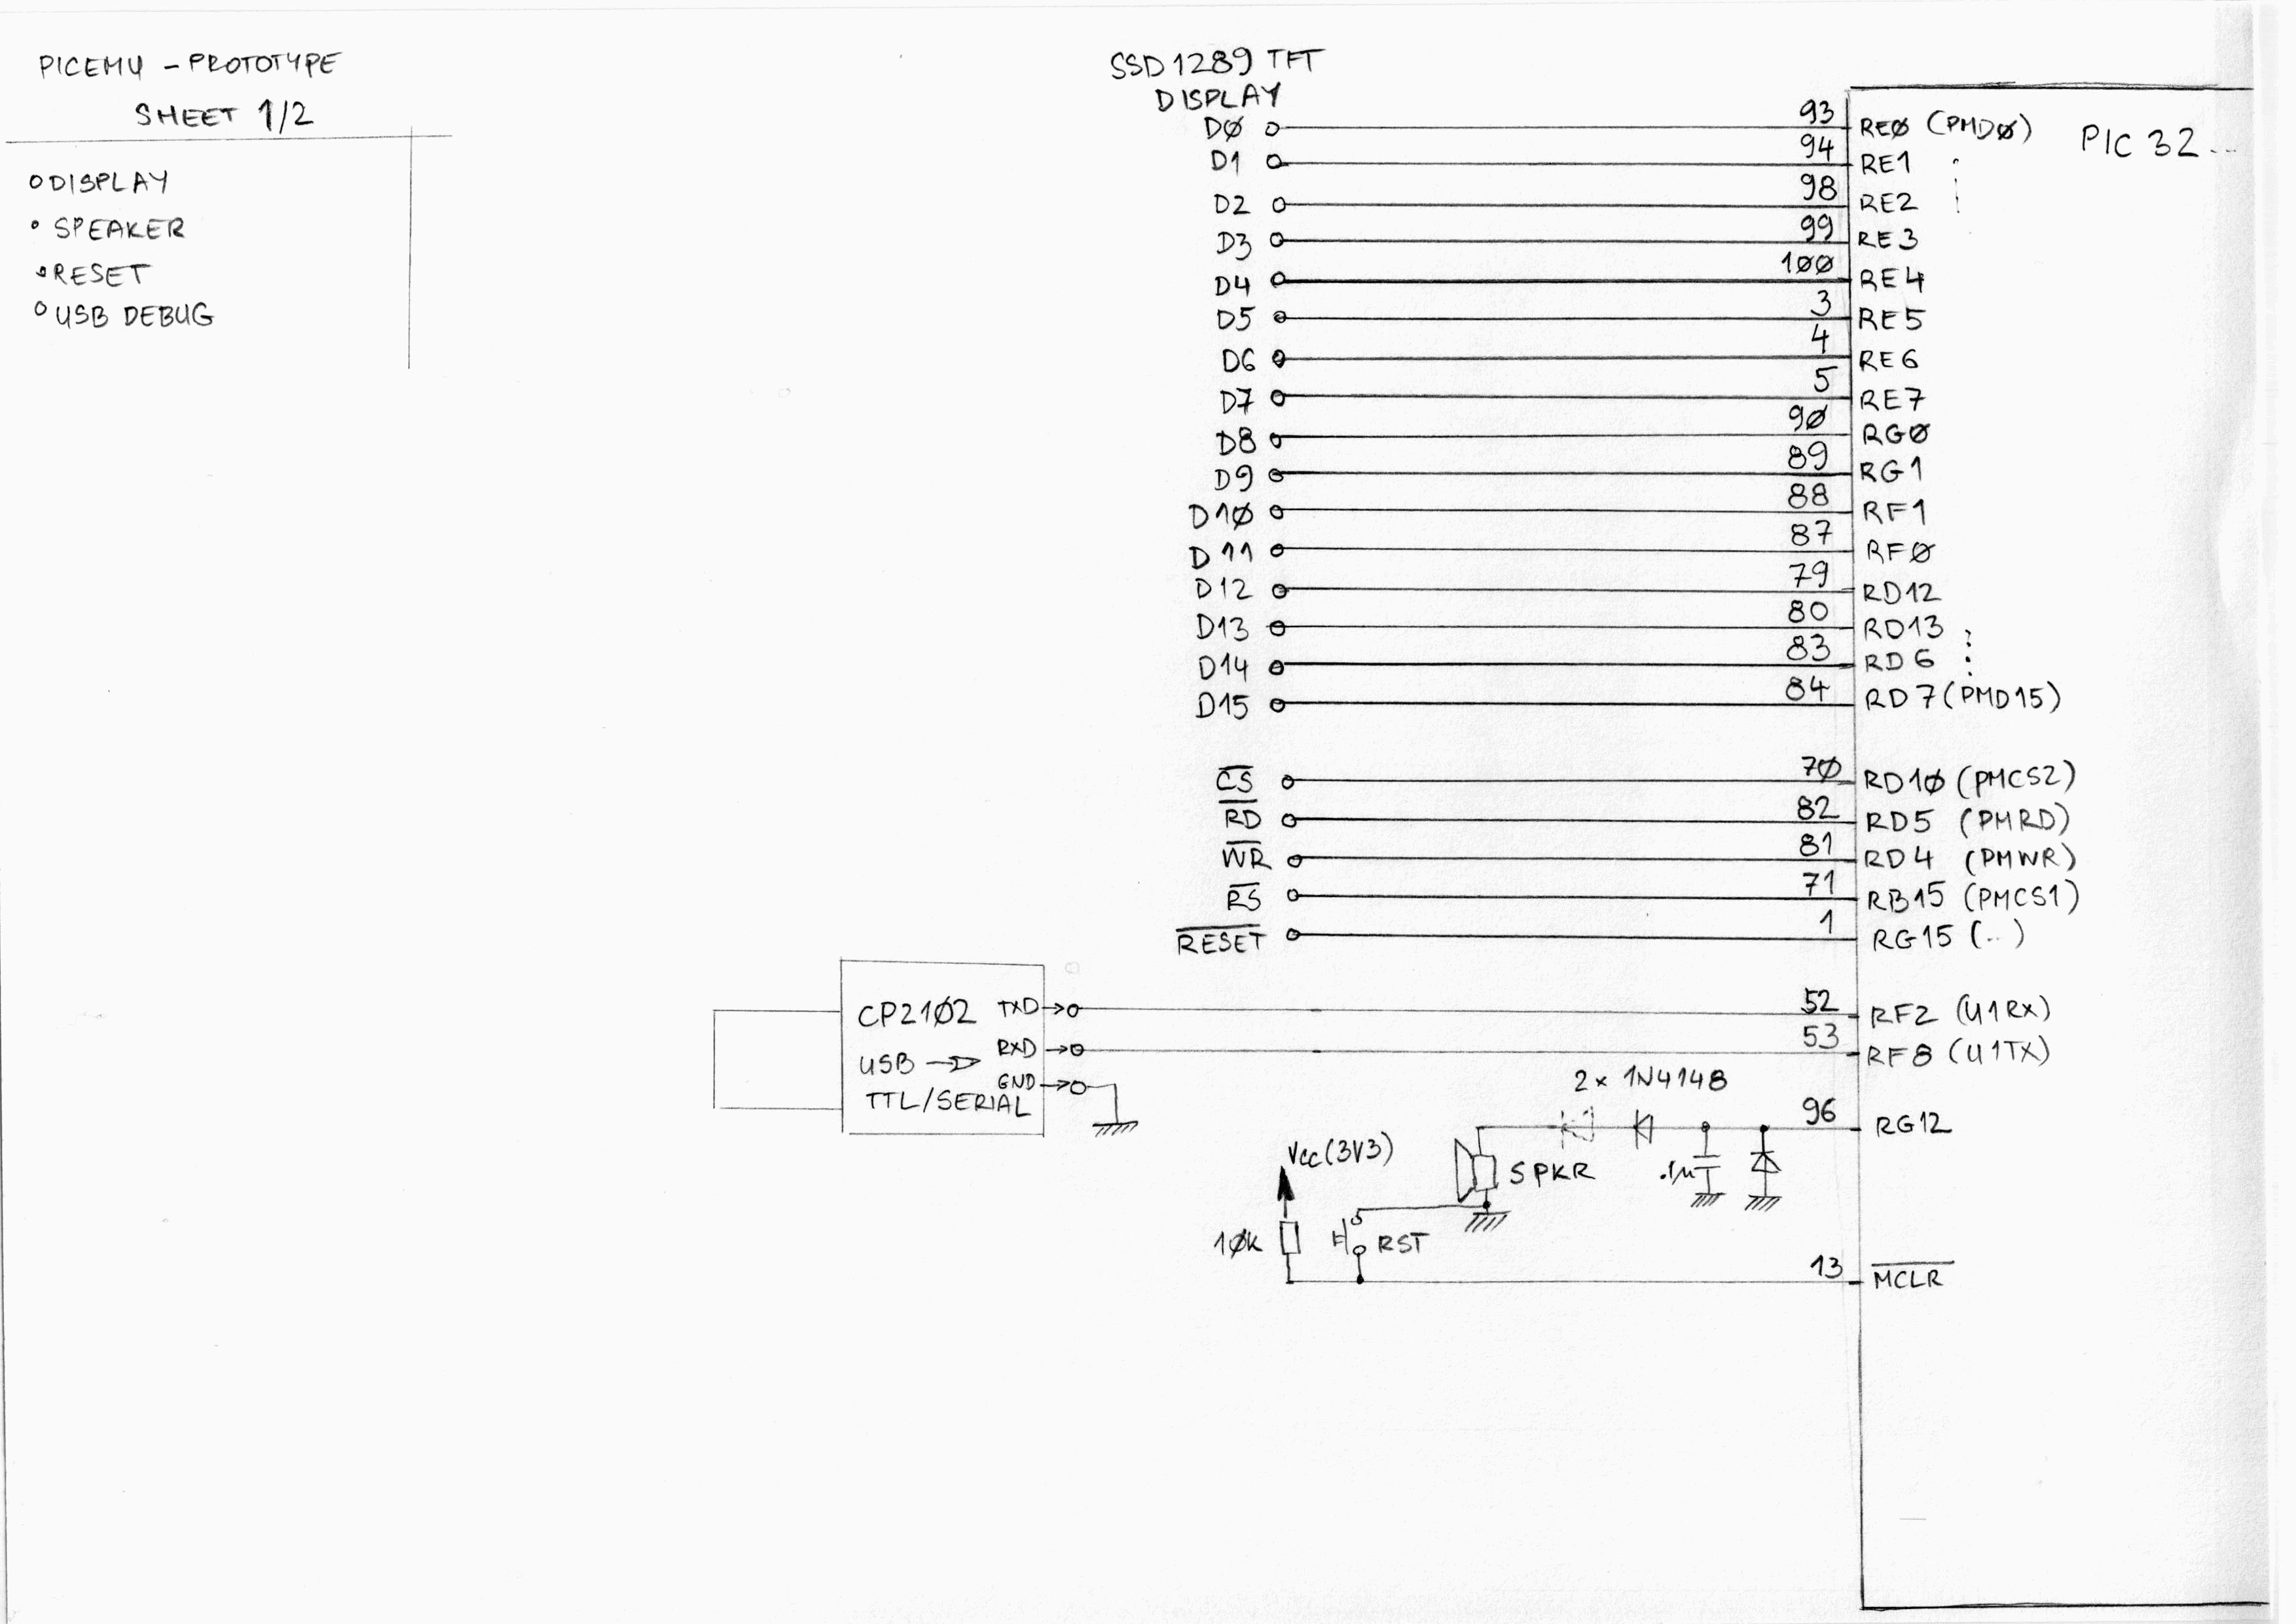 PICEMU - PROTOTYPE
SHEET 1/2
DISPLAY
SPEAKER
RESET
USB DEBUG
SSD1289 TFT
DISPLAY
PIC 32...
D0 93 RE0 (PMD0)
D1 94 RE1
D2 98 RE2
D3 99 RE3
D4 100 RE4
D5 3 RE5
D6 4 RE6
D7 5 RE7
D8 90 RG0
D9 89 RG1
D10 88 RF1
D11 87 RF0
D12 79 RD12
D13 80 RD13
D14 83 RD6
D15 84 RD7 (PMD15)
CS 70 RD10 (PMCS2)
RD 82 RD5 (PMRD)
WR 81 RD4 (PMWR)
RS 71 RB15 (PMCS1)
RESET 1 RG15 (..)
CP2102 TXD 52 RF2 (U1RX)
USB RXD 53 RF8 (U1TX)
TTL/SERIAL GND
2x 1N4148
96 RG12
Vcc (3V3)
SPKR .1µ
10K RST
13 MCLR